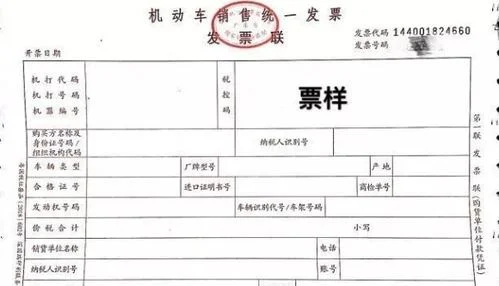 机动车销售统一发票
发票联
发票代码 144001824660
发票号码
开票日期
机打代码
机打号码
机器编号
税控码
票样
购买方名称及身份证号码/组织机构代码
纳税人识别号
车辆类型
厂牌型号
产地
合格证号
进口证明书号
商检单号
发动机号码
车辆识别代号/车架号码
价税合计
小写
销货单位名称
电话
纳税人识别号
账号
第一联 发票联(购货单位付款凭证)